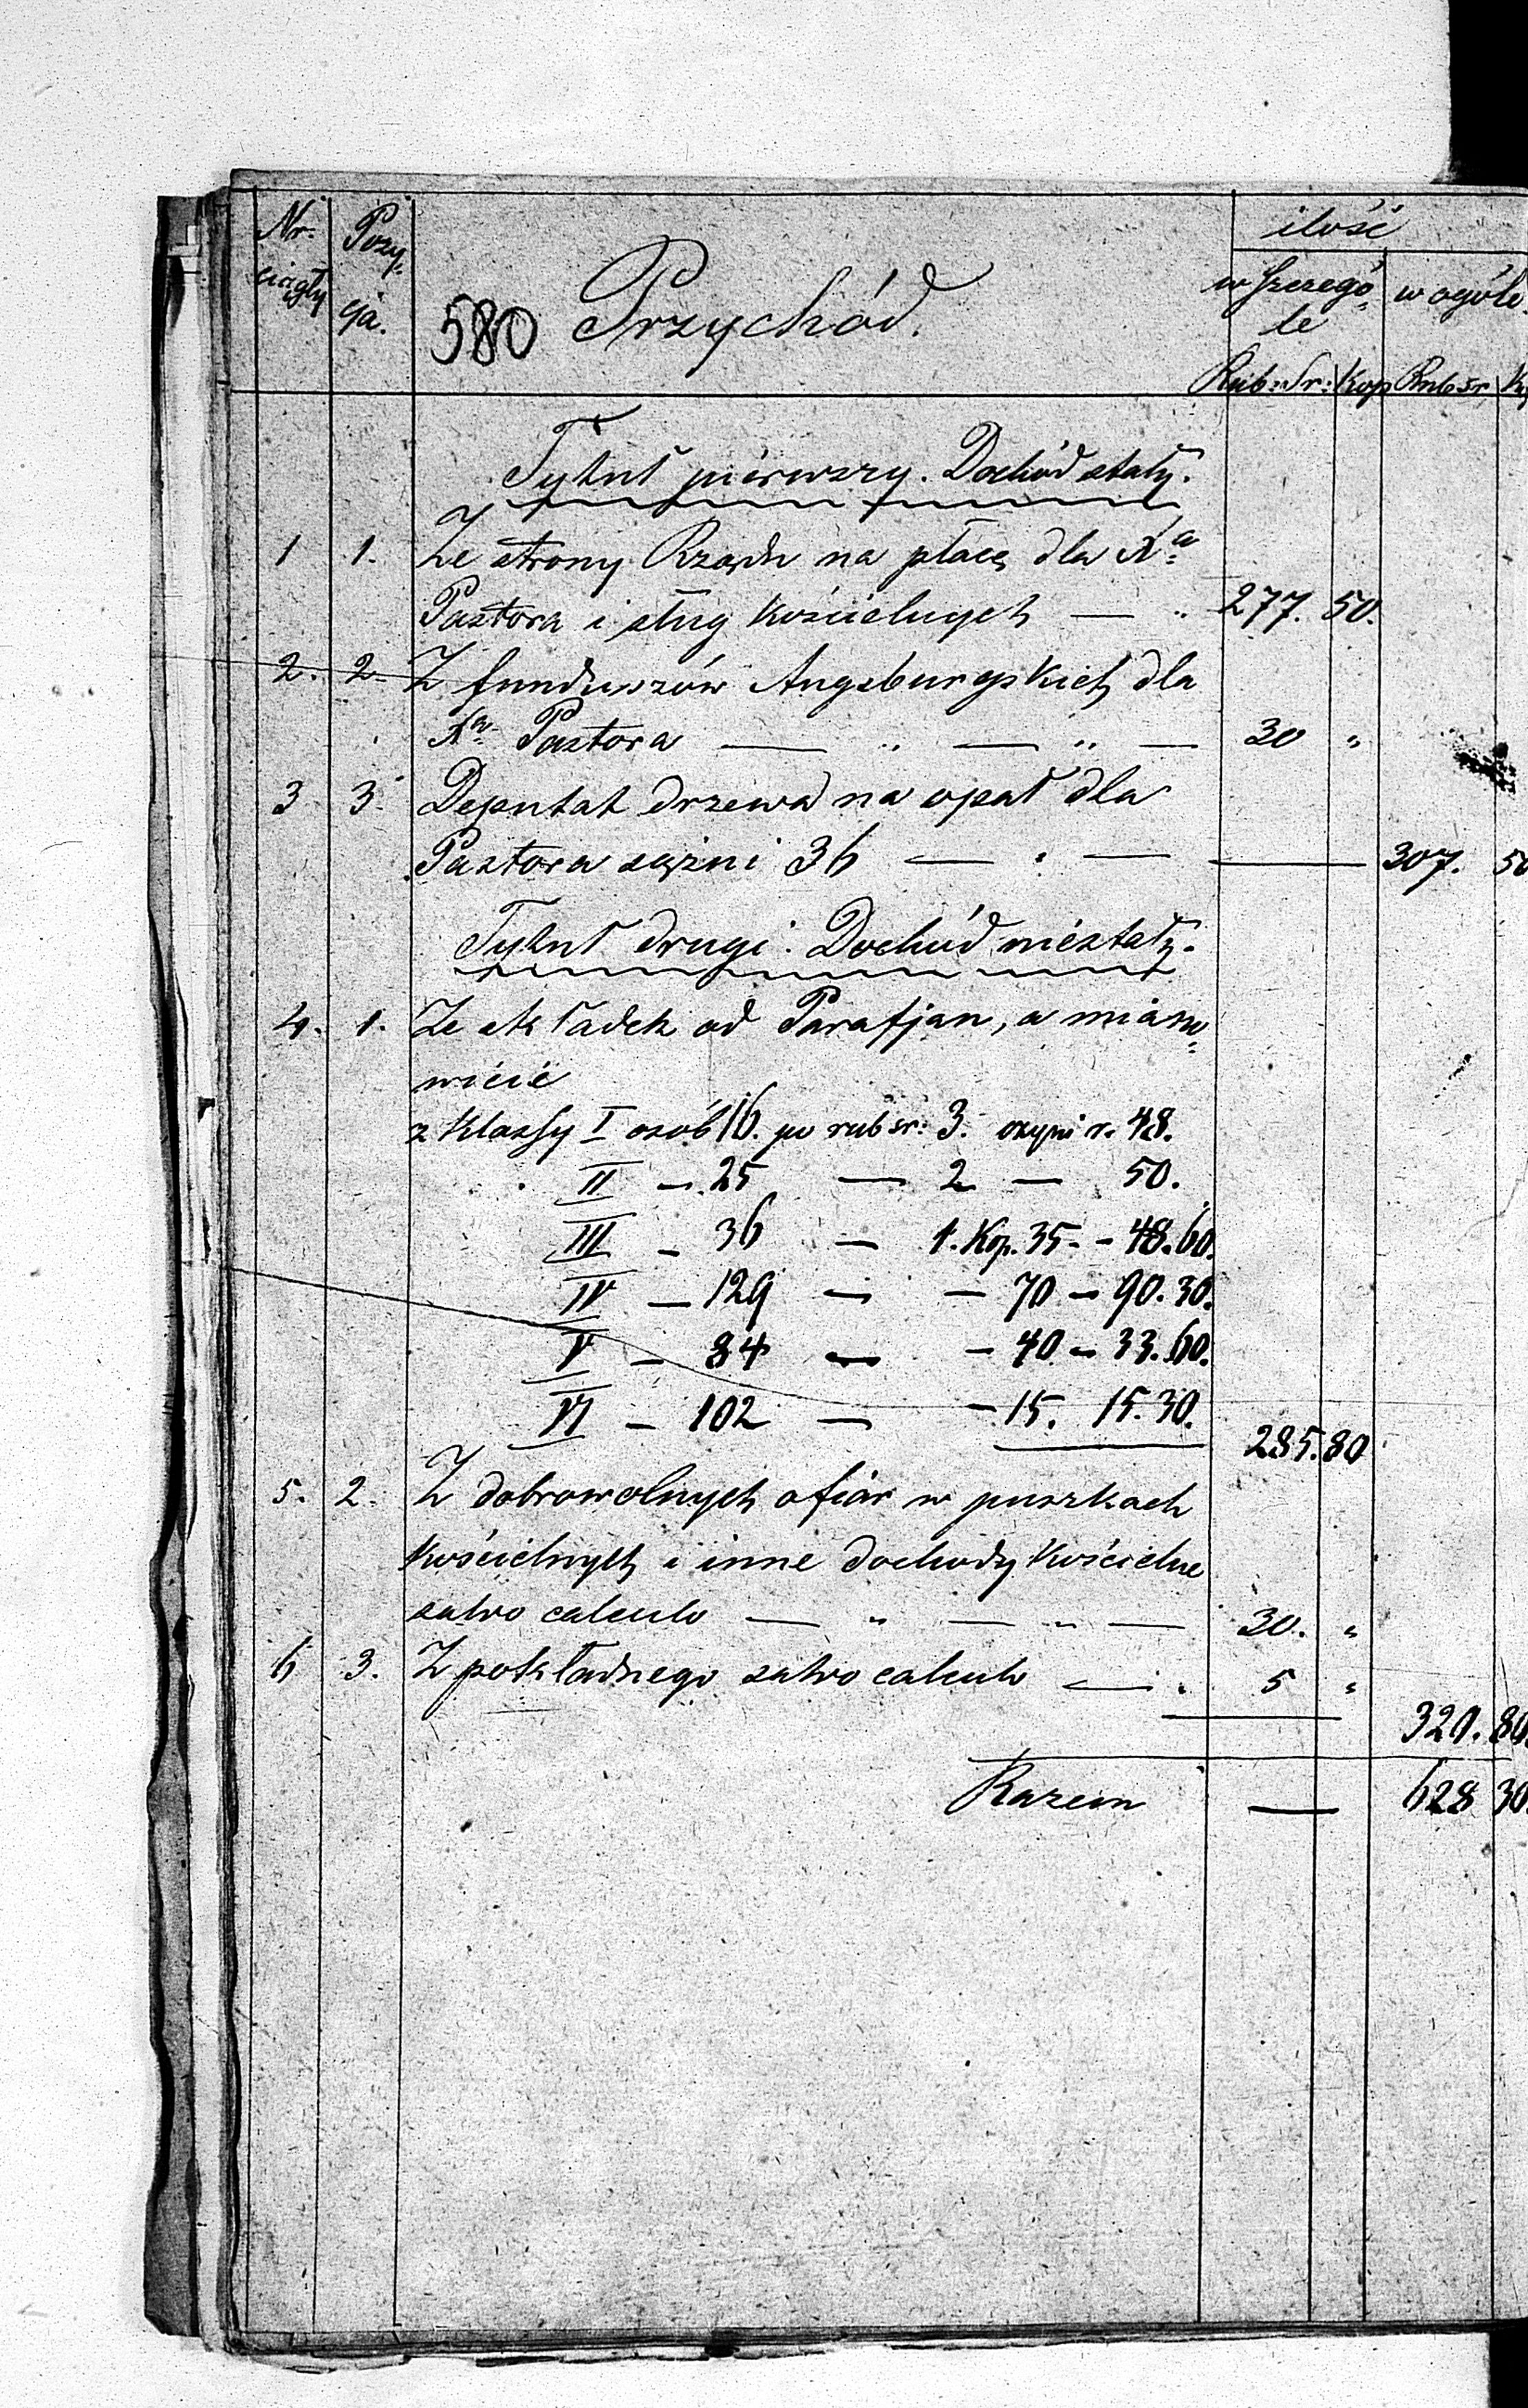 Nr. Pozy- ilość
ciągły cja. 580 Przychód. w szczegó- w ogóle
le
Rub: Sr: Kop Rub sr
Tytuł pierwszy. Dochód stały.
1 1. Ze strony Rządu na płacę dla Xa
Pastora i sług Kościelnych — " 277. 50.
2. 2 Z funduszów Augsburgskich dla
Xa Pastora — " — " — 30 "
3 3 Deputat drzewa na opał dla
Pastora sążni 36 — " — — 307. 50
Tytuł drugi. Dochód niestały.
4. 1. Ze składek od Parafjan, a miano-
wicie
z Klassy I osób 16. po rub sr: 3. czyni r. 48.
II — 25 — 2 — 50.
III — 36 — 1. Kop. 35 - - 48. 60.
IV — 129 — — 70 — 90. 30.
V — 84 — — 40 — 33. 60.
VI — 102 — — 15. 15. 30.
285. 80
5. 2. Z dobrowolnych ofiar w puszkach
Kościelnych i inne dochody Kościelne
salvo calculo — " — " — 30. "
6 3. Z pokładnego salvo calculo — " 5 "
320. 80
Razem — 628 30.